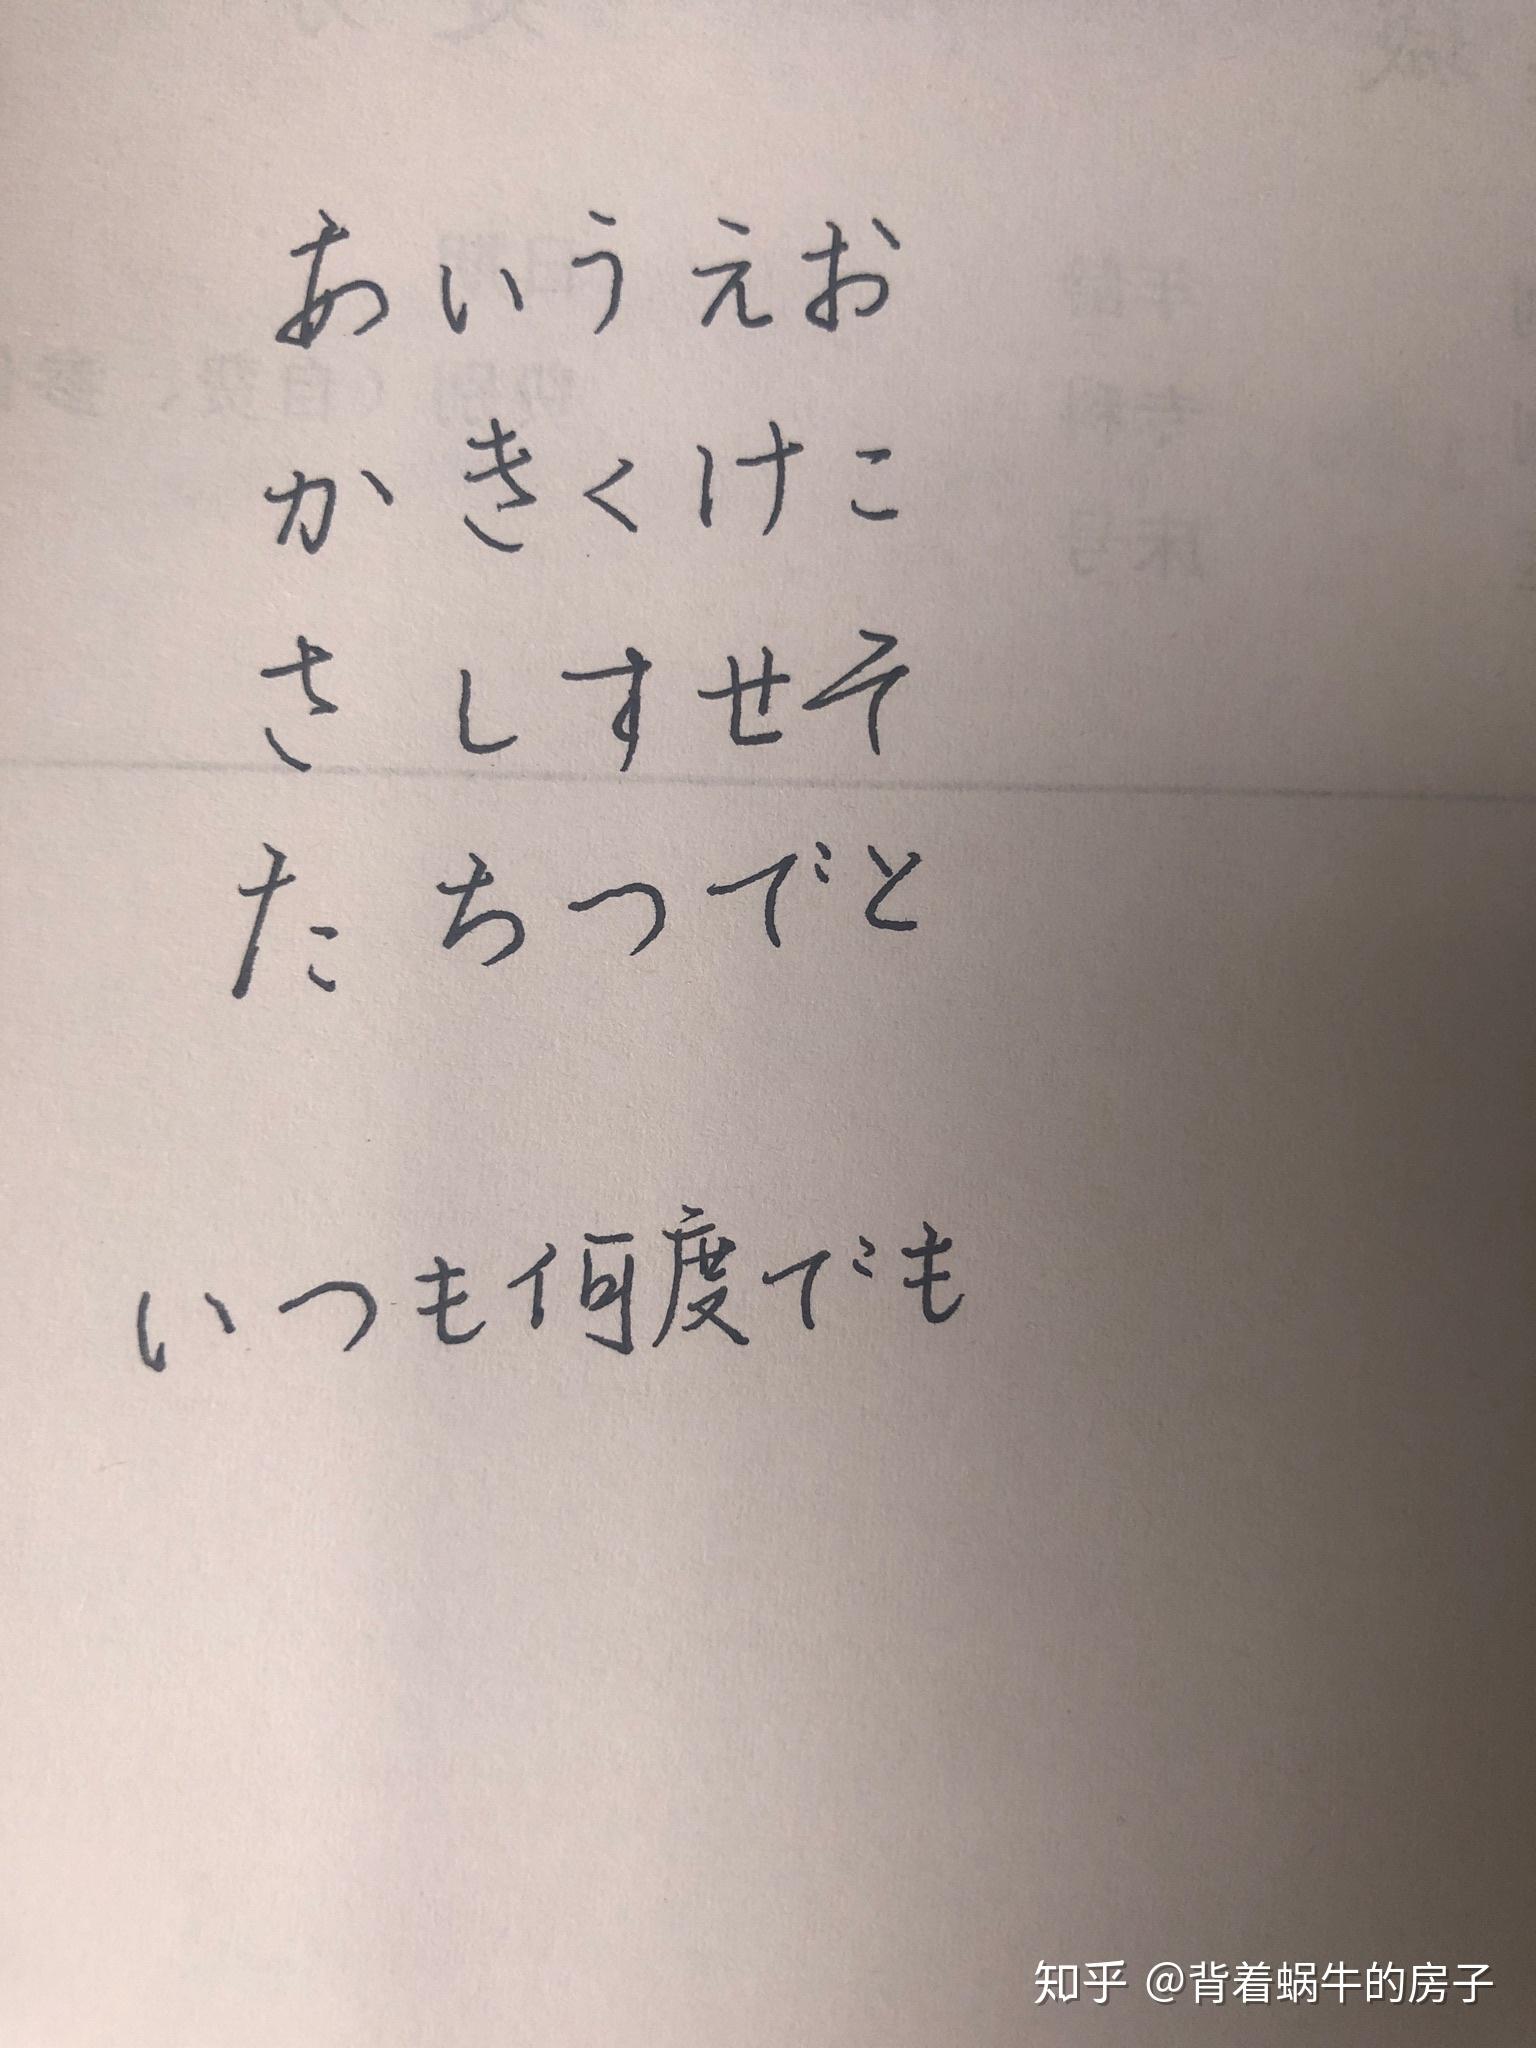 あいうえお
かきくけこ
さしすせそ
たちつでと
いつも何度でも
知乎 @背着蜗牛的房子